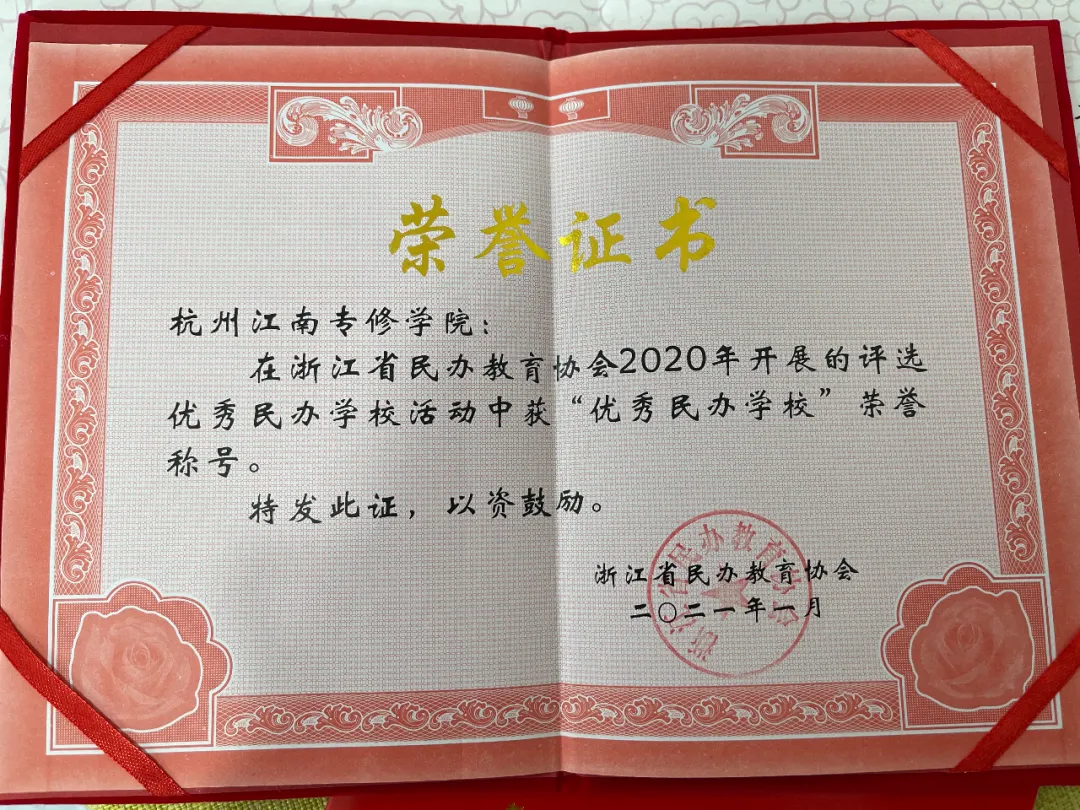 荣誉证书
杭州江南专修学院：
在浙江省民办教育协会2020年开展的评选
优秀民办学校活动中获“优秀民办学校”荣誉
称号。
特发此证，以资鼓励。
浙江省民办教育协会
二〇二一年一月
浙江省民办教育协会